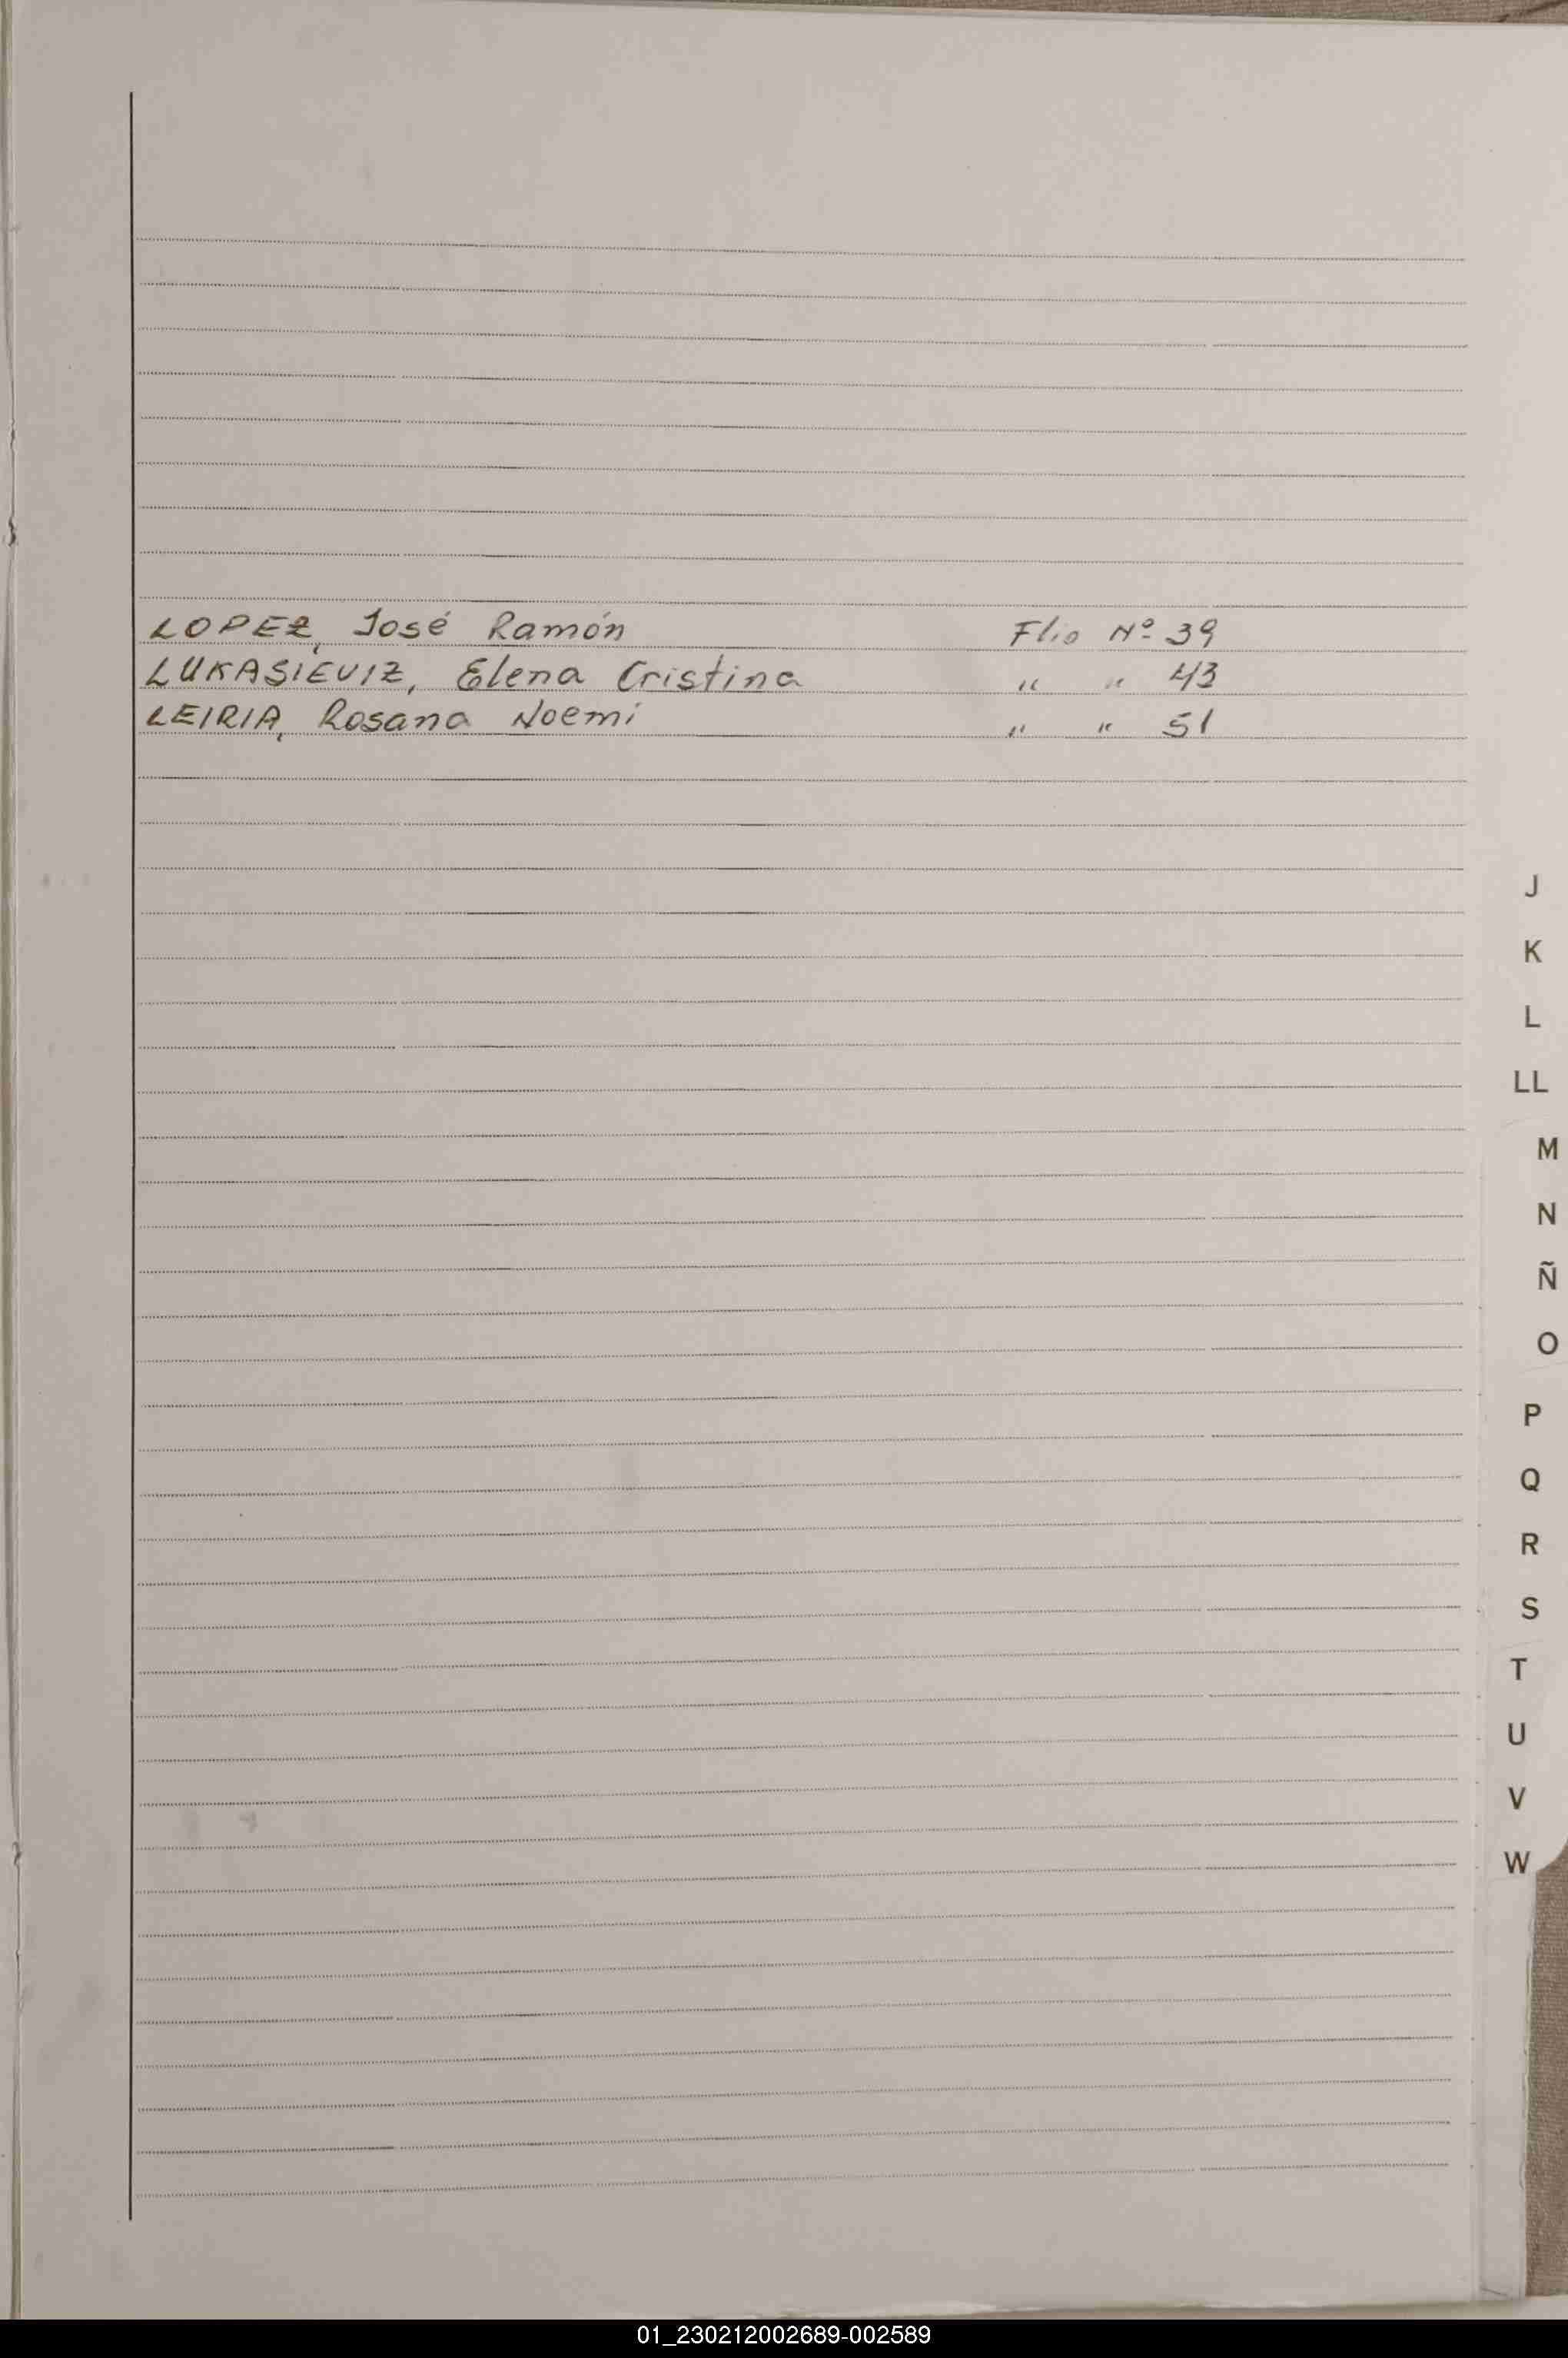 LOPEZ, José Ramón Flio Nº 39
LUKASIEVIZ, Elena Cristina " " 43
LEIRIA, Rosana Noemí " " 51
J
K
L
LL
M
N
Ñ
O
P
Q
R
S
T
U
V
W
01_230212002689-002589